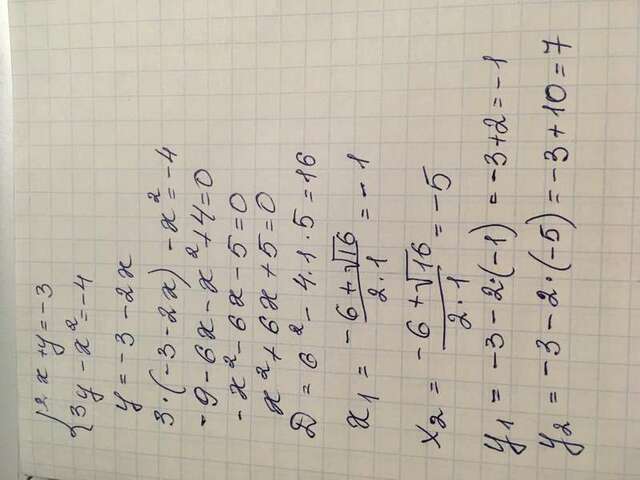 {2x+y=-3
3y-x²=-4
y=-3-2x
3·(-3-2x)-x²=-4
-9-6x-x²+4=0
-x²-6x-5=0
x²+6x+5=0
D=6²-4·1·5=16
x₁=(-6+√16)/(2·1)=-1
x₂=(-6+√16)/(2·1)=-5
y₁=-3-2·(-1)=-3+2=-1
y₂=-3-2·(-5)=-3+10=7